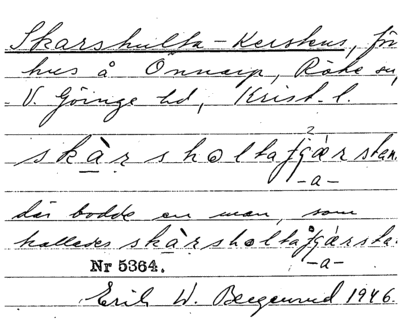 Skarshulta-Kerstens, för
hus å Önnarp, Röke sn,
V. Göinge hd, Krist. l.
skàrsholtafjǽrstan.
-a-
där bodde en man, som
kallades skàrsholta
-a-
Nr 5364.
Erik W. 1946.